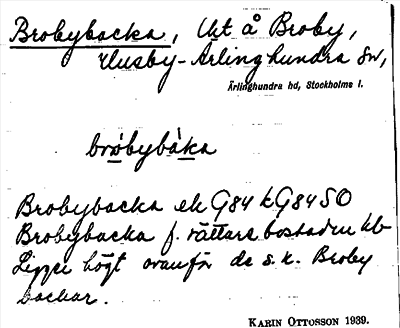 Brobybacka, Utt å Broby,
Husby-Ärlinghundra sn,
Ärlinghundra hd, Stockholms l.
bròbybàka
Brobybacka ek G84 k G84 SO
Brobybacka f. rättarebostad u hb
Ligger högt ovanför de s.k. Broby
backar.
KARIN OTTOSSON 1939.